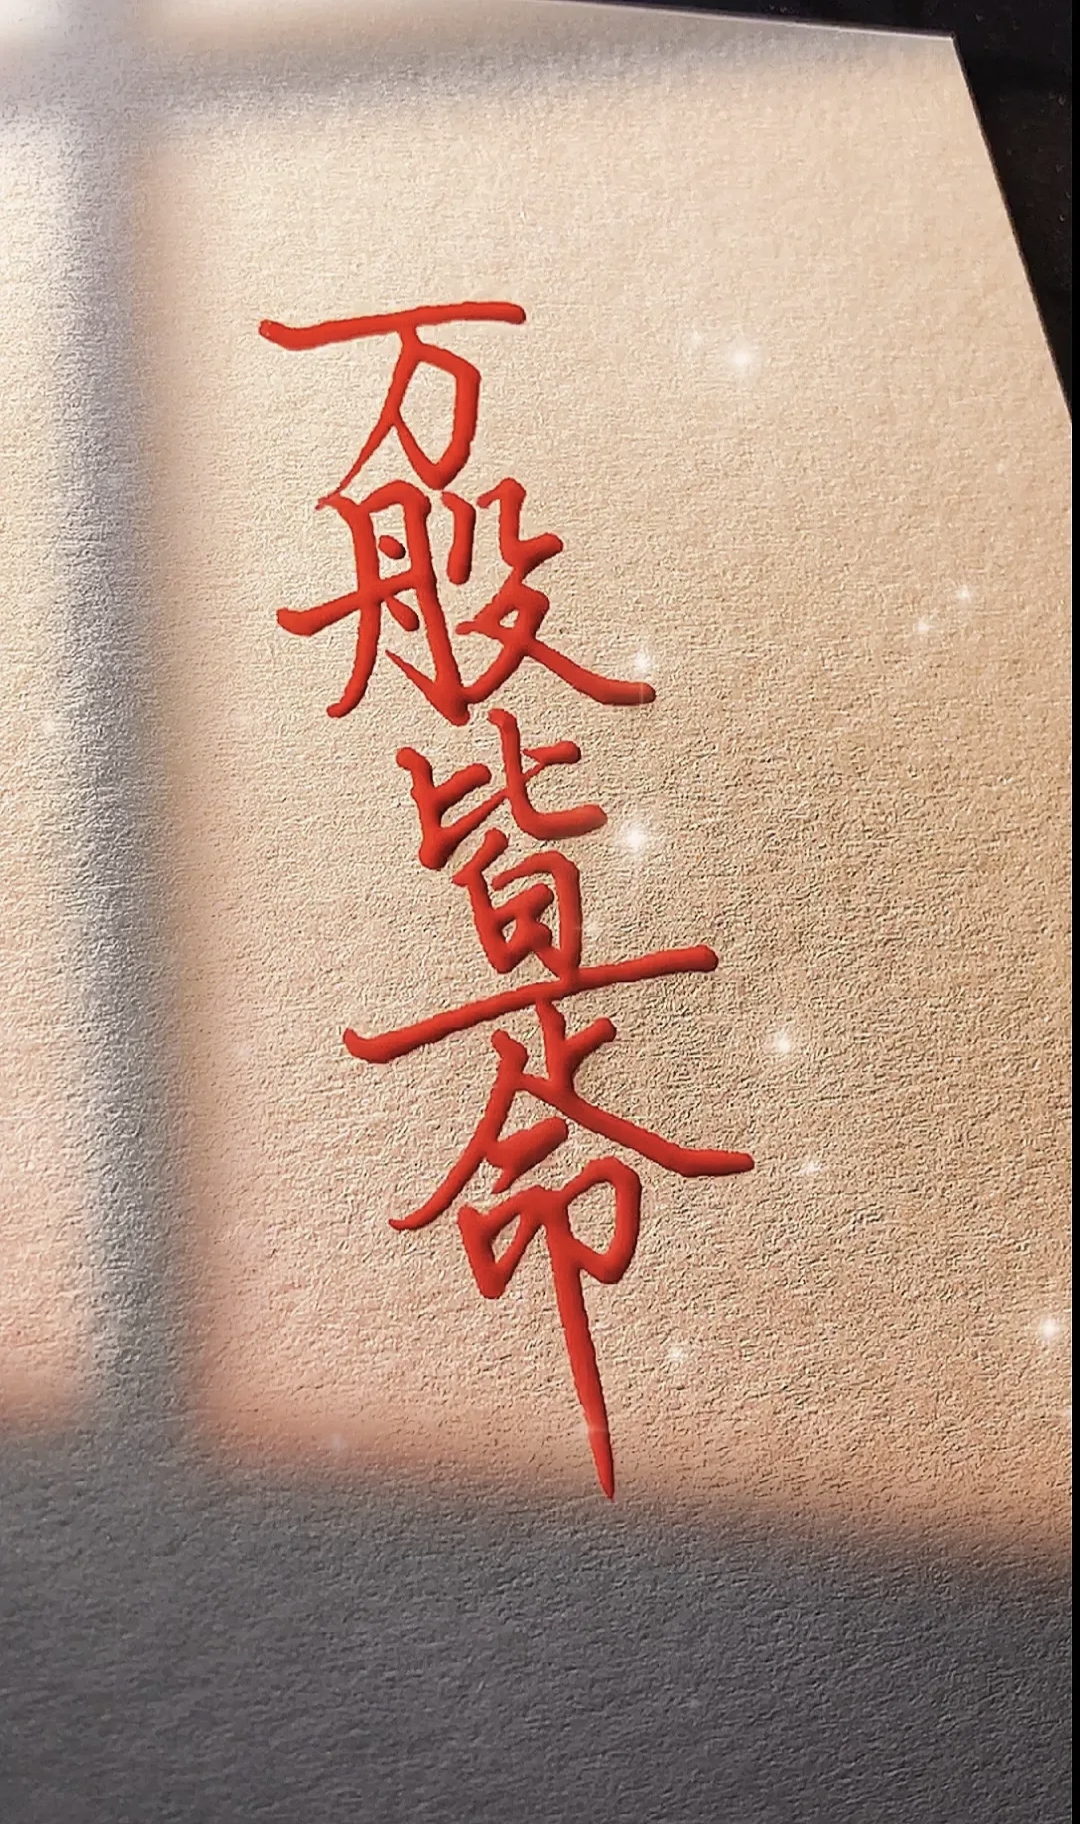 万般皆是命